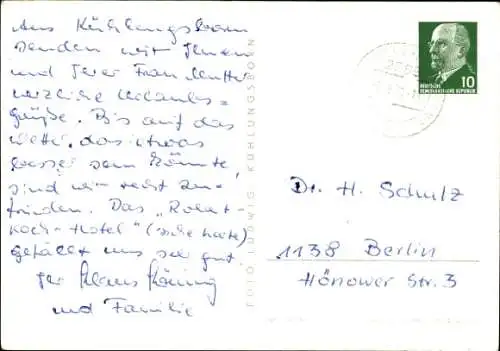 Aus Kühlungsborn
senden wir Ihnen
und Ihrer Frau Mutter
herzliche Urlaubs=
grüße. Bis auf das
Wetter, das etwas
besser sein könnte,
sind wir recht zu-
frieden. Das "Robert-
Koch-Hotel" (siehe Karte)
gefällt uns sehr gut.
Ihr Klaus
und Familie
FOTO LUDWIG, KÜHLUNGSBORN
10
DEUTSCHE
DEMOKRATISCHE REPUBLIK
Dr. H. Schulz
1138 Berlin
Hönower Str. 3